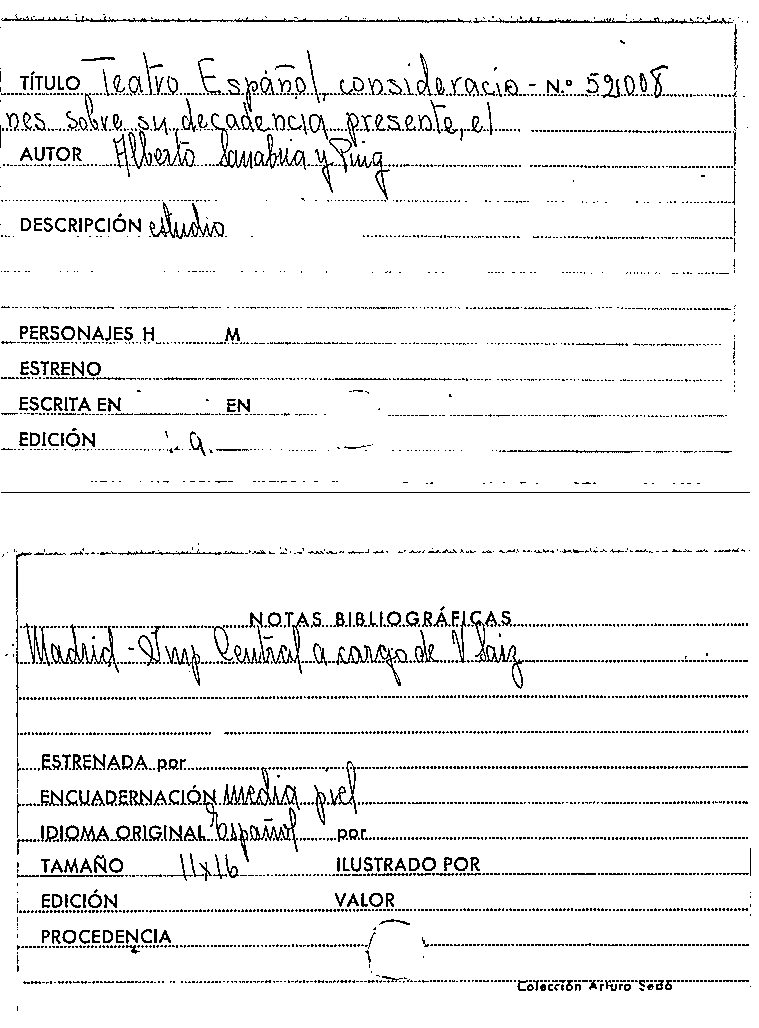 TÍTULO Teatro Español, consideracio- N.º 521008
nes sobre su decadencia presente, el
AUTOR Alberto Sanabria y Puig
DESCRIPCIÓN estudio
PERSONAJES H M
ESTRENO
ESCRITA EN EN
EDICIÓN a.
NOTAS BIBLIOGRÁFICAS
Madrid - Imp Central a cargo de V Saiz
ESTRENADA por
ENCUADERNACIÓN media piel
IDIOMA ORIGINAL Español por
TAMAÑO 11x16 ILUSTRADO POR
EDICIÓN VALOR
PROCEDENCIA
Colección Arturo Sedó